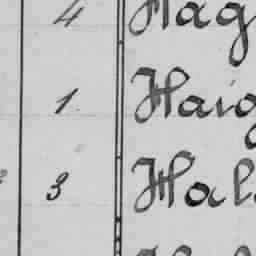 4 Hag
1 Haig
3 Hal